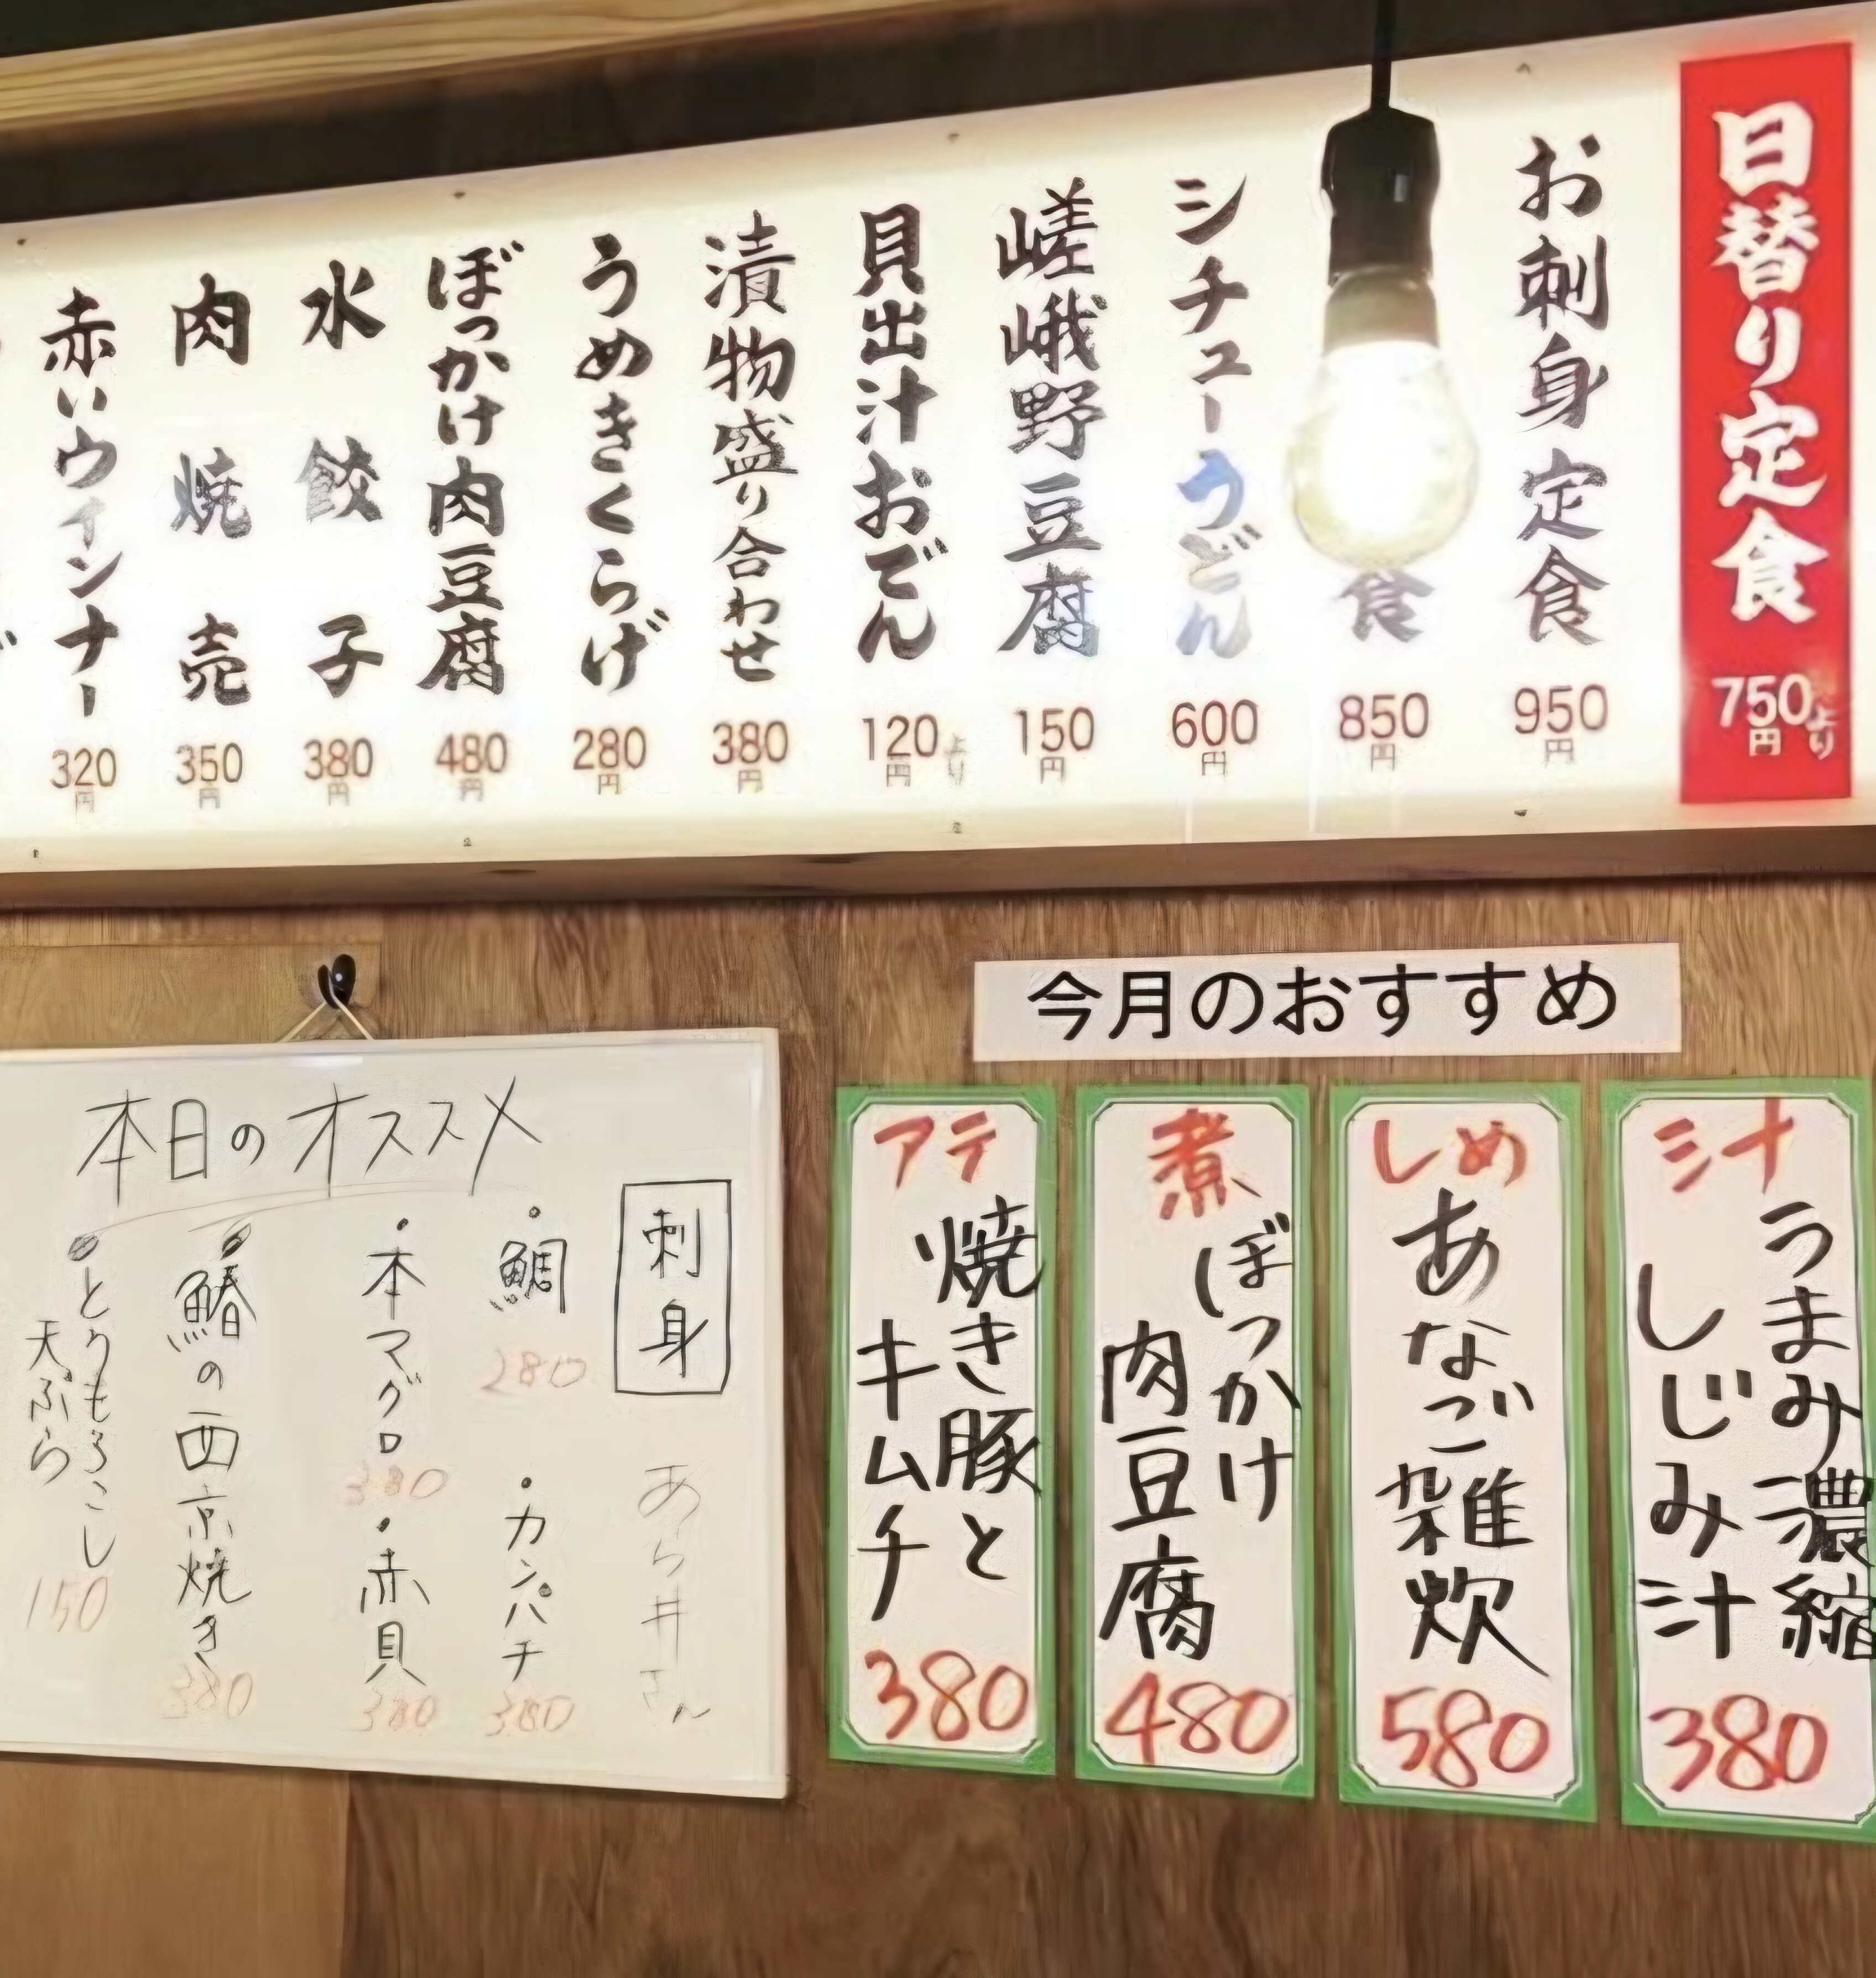 日替り定食
750円より
お刺身定食
950円
食
850円
シチューうどん
600円
嵯峨野豆腐
150円
貝出汁おでん
120円より
漬物盛り合わせ
380円
うめきくらげ
280円
ぼっかけ肉豆腐
480円
水餃子
380円
肉焼売
350円
赤いウィンナー
320円
今月のおすすめ
汁
うまみ濃縮
しじみ汁
380
しめ
あなご雑炊
580
煮
ぼっかけ
肉豆腐
480
アテ
焼き豚と
キムチ
380
本日のオススメ
刺身
あら井さん
・鯛
280
・カンパチ
380
・本マグロ
380
・赤貝
380
・鰆の西京焼き
380
・とうもろこし
天ぷら
150